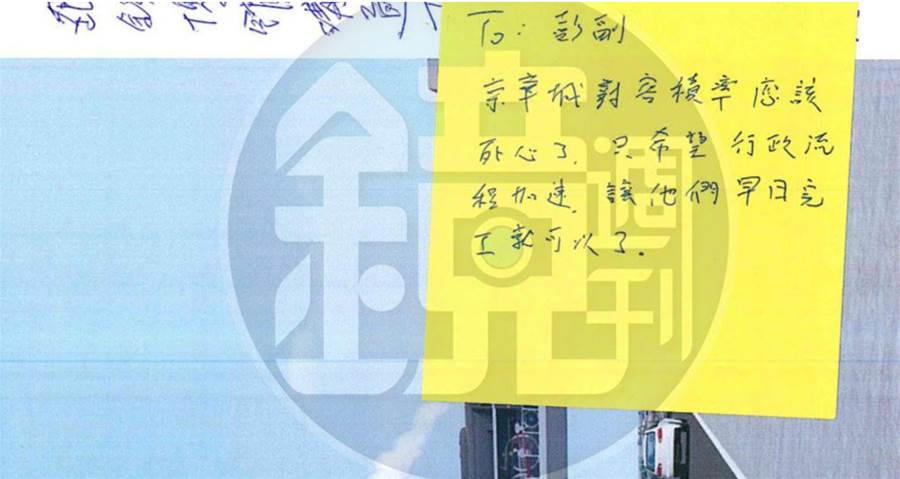 To: 彭副
京華城對容積率應該
死心了,只希望行政流
程加速,讓他們早日完
工就可以了.
鏡週刊